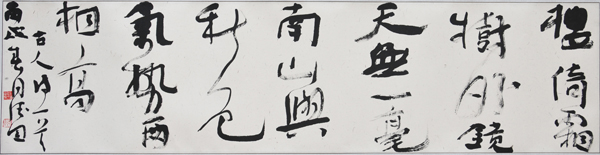 樓倚霜
樹外鏡
天無一毫
南山與
秋色
氣勢兩
相高
古人诗一首
丙戌春月